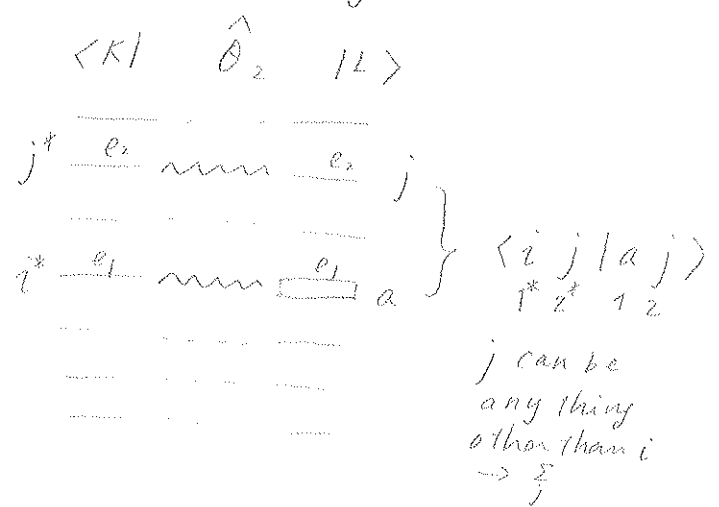 <K| Ô₂ |L>
j* e₂ e₂ j
i* e₁ e₁ a
<i j | a j>
1* 2* 1 2
j can be
any thing
other than i
--> Σ
j